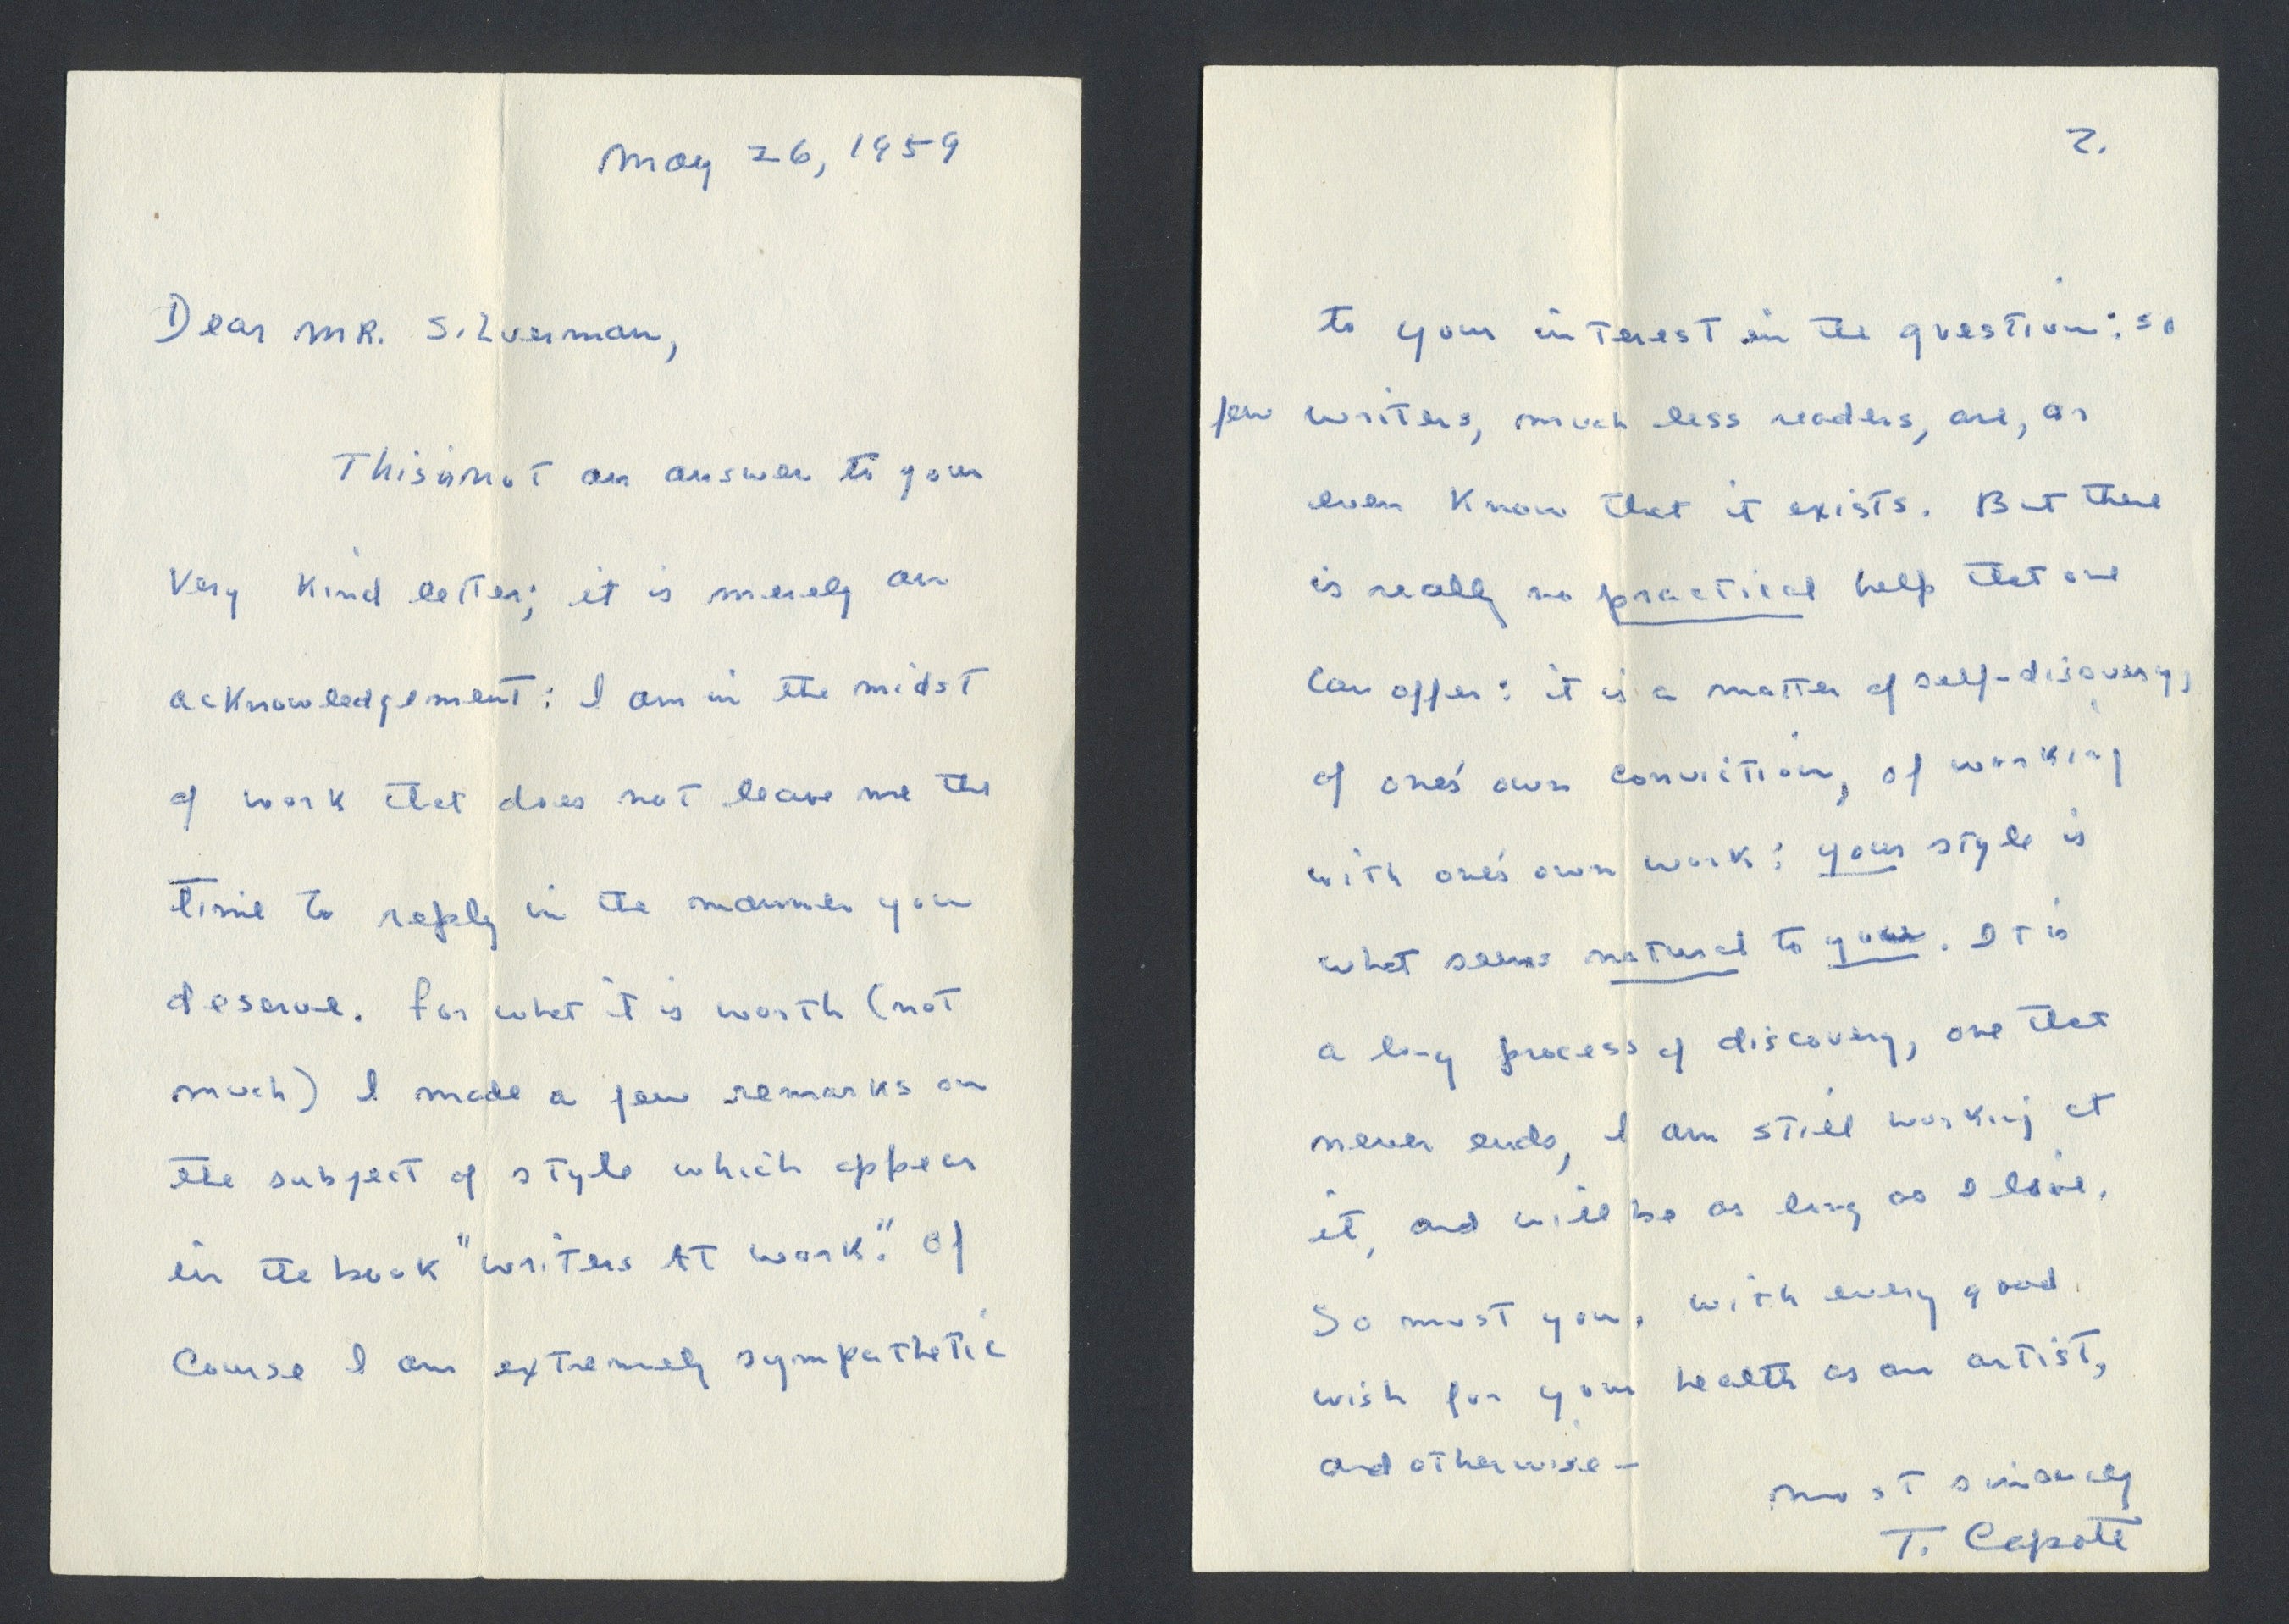 May 26, 1959
Dear MR. Silverman,
This is not an answer to your
very kind letter; it is merely an
acknowledgement: I am in the midst
of work that does not leave me the
time to reply in the manner you
deserve. For what it is worth (not
much) I made a few remarks on
the subject of style which appear
in the book "Writers At Work". Of
Course I am extremely sympathetic
2.
to your interest in the question: so
few writers, much less readers, are, or
even know that it exists. But there
is really no practical help that one
can offer: it is a matter of self-discovery,
of one's own conviction, of working
with one's own work: your style is
what seems natural to you. It is
a long process of discovery, one that
never ends, I am still working at
it, and will be as long as I live.
So must you. With every good
wish for your health as an artist,
and otherwise —
most sincerely
T. Capote